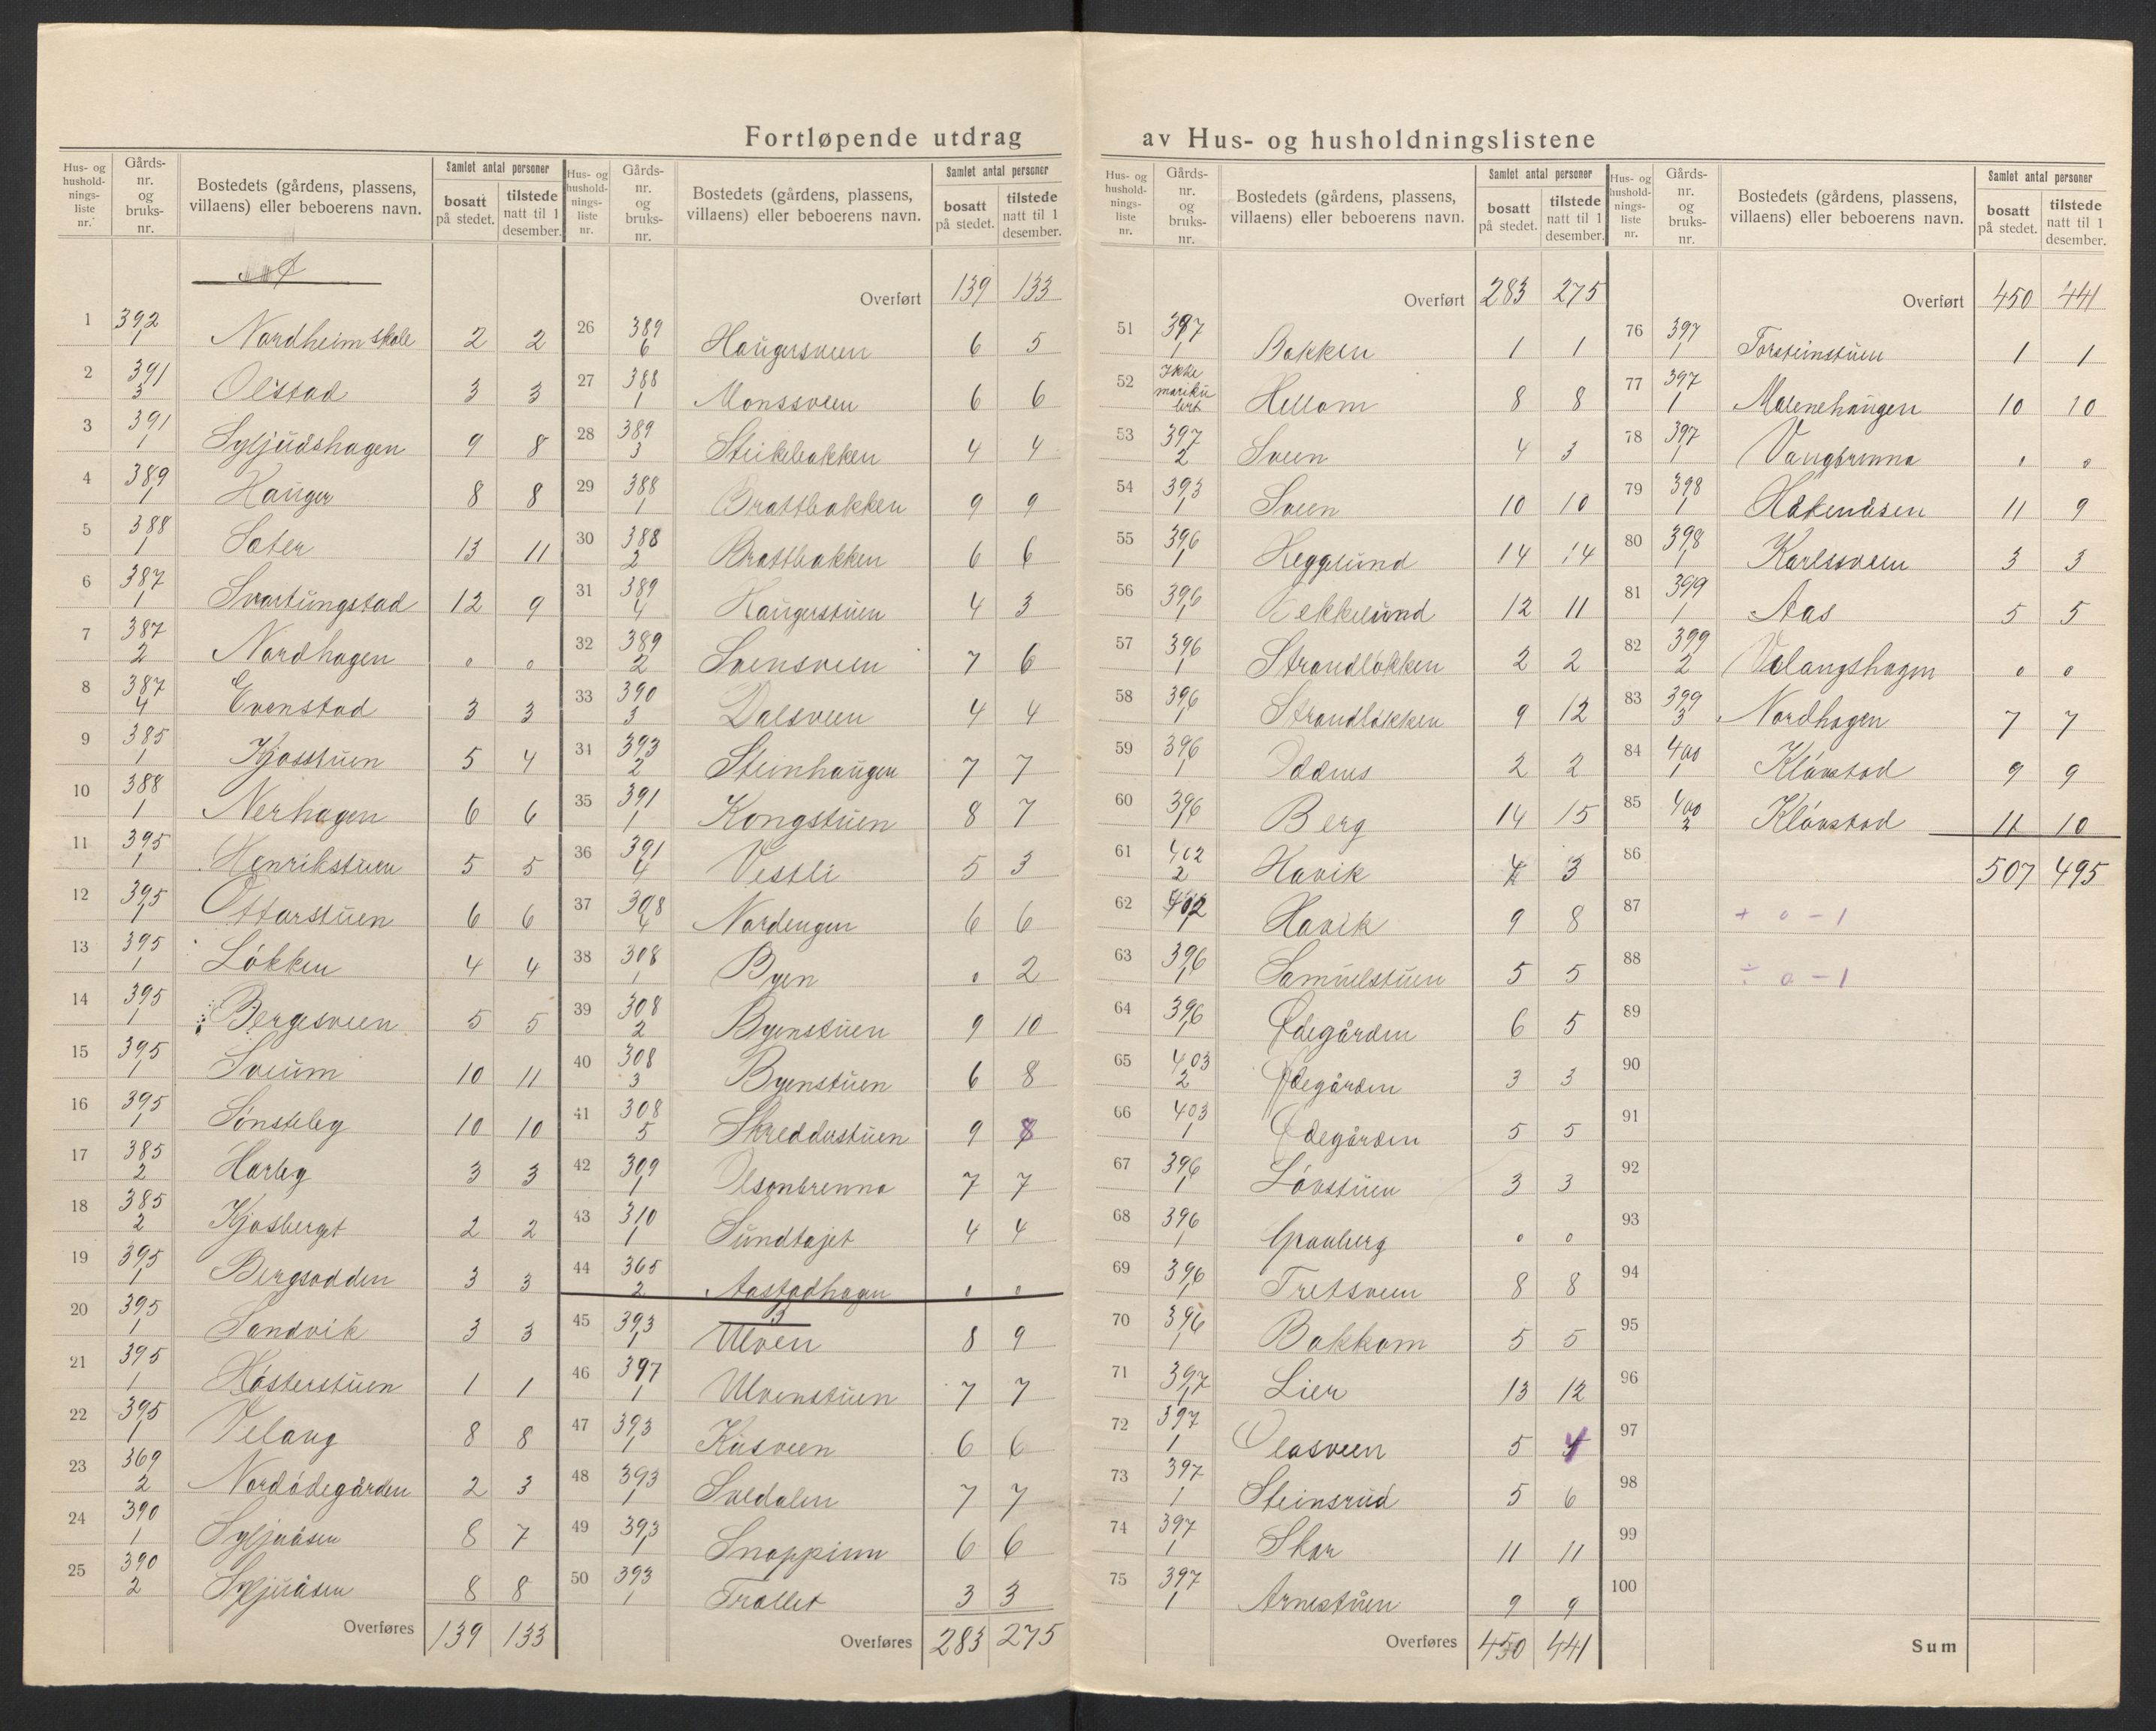 Fortløpende utdrag av Hus- og husholdningslistene
Hus- og husholdnings-liste nr. Gårds-nr. og bruks-nr. Bostedets (gårdens, plassens, villaens) eller beboerens navn. Samlet antal personer bosatt på stedet. tilstede natt til 1 desember.
1 392/1 Nordheim skole 2 2
2 391/3 Olstad 3 3
3 391/1 Syljudshagen 9 8
4 389/1 Hauger 8 8
5 388/1 Sater 13 11
6 387/1 Svartungstad 12 9
7 387/2 Nordhagen 0 0
8 387/4 Evenstad 3 3
9 385/1 Kjosstuen 5 4
10 388/1 Nerhagen 6 6
11 395/1 Henrikstuen 5 5
12 395/1 Ottarstuen 6 6
13 395/1 Løkken 4 4
14 395/1 Bergesveen 5 5
15 395/1 Sveum 10 11
16 395/1 Sønsteby 10 10
17 385/2 Harby 3 3
18 385/2 Kjosberget 2 2
19 395/1 Bergsodden 3 3
20 395/1 Sandvik 3 3
21 395/1 Høsterstuen 1 1
22 395/1 Velang 8 8
23 369/2 Nordødegården 2 3
24 390/1 Syljuåsen 8 7
25 390/2 Syljuåsen 8 8
Overføres 139 133
Hus- og husholdnings-liste nr. Gårds-nr. og bruks-nr. Bostedets (gårdens, plassens, villaens) eller beboerens navn. Samlet antal personer bosatt på stedet. tilstede natt til 1 desember.
Overført 139 133
26 389/6 Haugersveen 6 5
27 388/1 Monssveen 6 6
28 389/3 Steikebakken 4 4
29 388/1 Brattbakken 9 9
30 388/2 Brattbakken 6 6
31 389/4 Haugerstuen 4 3
32 389/2 Svensveen 7 6
33 390/3 Dalsveen 4 4
34 393/2 Steinhaugen 7 7
35 391/1 Kongstuen 8 7
36 391/4 Vestli 5 3
37 308/4 Nordengen 6 6
38 308/1 Byen 0 2
39 308/2 Byenstuen 9 10
40 308/3 Byenstuen 6 8
41 308/5 Skreddustuen 9 8
42 309/1 Olsonbrenna 7 7
43 310/1 Sundtajet 4 4
44 365/2 Aastadhagen 0 0
45 393/1 Ulven 8 9
46 397/1 Ulvenstuen 7 7
47 393/1 Kusveen 6 6
48 393/1 Svedalen 7 7
49 393/1 Snappinn 6 6
50 393/1 Trollet 3 3
Overføres 283 275
Hus- og husholdnings-liste nr. Gårds-nr. og bruks-nr. Bostedets (gårdens, plassens, villaens) eller beboerens navn. Samlet antal personer bosatt på stedet. tilstede natt til 1 desember.
Overført 283 275
51 397/1 Bakken 1 1
52 Ikke marikulert Hellom 8 8
53 397/2 Sveen 4 3
54 393/1 Sveen 10 10
55 396/1 Hegglund 14 14
56 396/1 Bekkelund 12 11
57 396/1 Strandløkken 2 2
58 396/1 Strandløkken 9 12
59 396/1 Oddnes 2 2
60 396/1 Berg 14 15
61 402/2 Havik 4 3
62 402/1 Havik 9 8
63 396/1 Samuelstuen 5 5
64 396/1 Ødegården 6 5
65 403/2 Ødegården 3 3
66 403/1 Ødegården 5 5
67 396/1 Løvstuen 3 3
68 396/1 Granberg 0 0
69 396/1 Tretsveen 8 8
70 396/1 Bakkom 5 5
71 397/1 Lier 13 12
72 397/1 Olasveen 5 4
73 397/1 Steinsrud 5 6
74 397/1 Skar 11 11
75 397/1 Arnestuen 9 9
Overføres 450 441
Hus- og husholdnings-liste nr. Gårds-nr. og bruks-nr. Bostedets (gårdens, plassens, villaens) eller beboerens navn. Samlet antal personer bosatt på stedet. tilstede natt til 1 desember.
Overført 450 441
76 397/1 Torsteinstuen 1 1
77 397/1 Malenehaugen 10 10
78 397/1 Vangbrenna 0 0
79 398/1 Håkenåsen 11 9
80 398/1 Karlssveen 3 3
81 399/1 Aas 5 5
82 399/2 Velangshagen 0 0
83 399/3 Nordhagen 7 7
84 400/1 Kløvstad 9 9
85 400/2 Kløvstad 11 10
86 507 495
87 + 0 - 1
88 ÷ 0 - 1
89
90
91
92
93
94
95
96
97
98
99
100
Sum